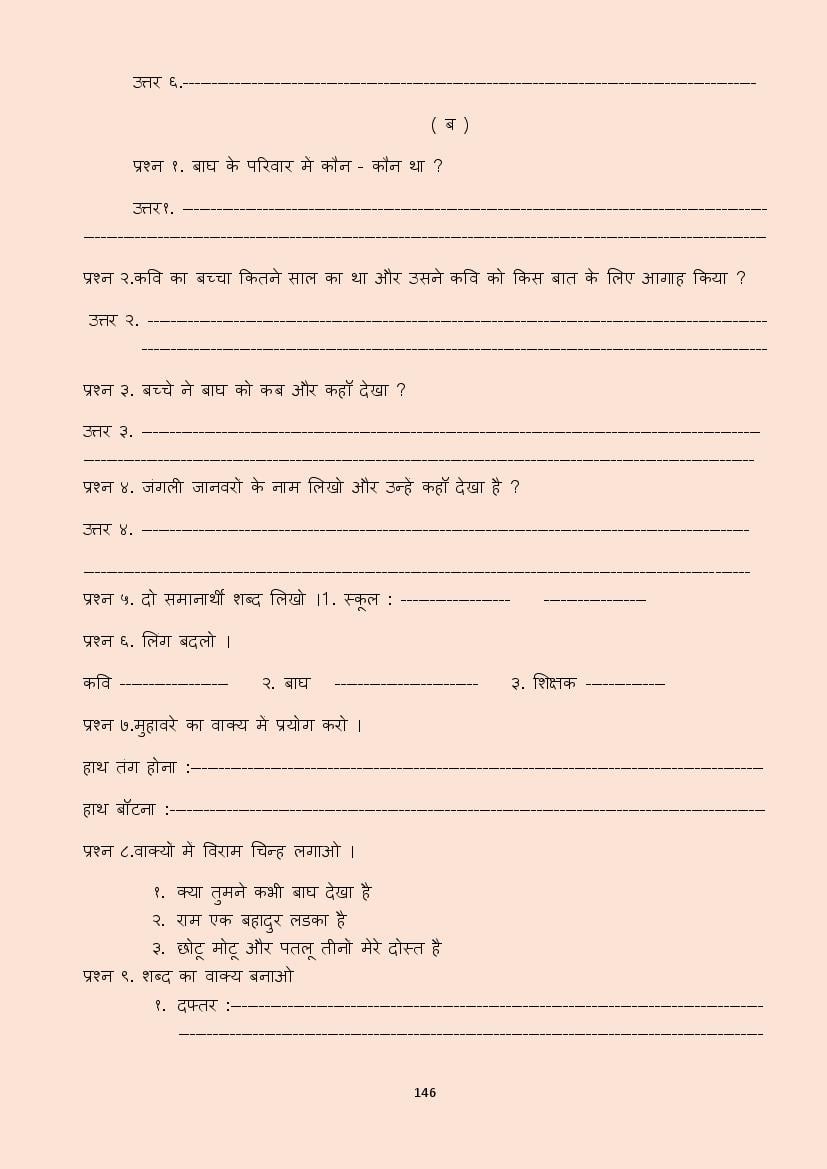 उत्तर ६.------------------------------------------------------------
( ब )
प्रश्न १. बाघ के परिवार में कौन - कौन था ?
उत्तर१. ------------------------------------------------------------
------------------------------------------------------------
प्रश्न २.कवि का बच्चा कितने साल का था और उसने कवि को किस बात के लिए आगाह किया ?
उत्तर २. ------------------------------------------------------------
------------------------------------------------------------
प्रश्न ३. बच्चे ने बाघ को कब और कहाँ देखा ?
उत्तर ३. ------------------------------------------------------------
------------------------------------------------------------
प्रश्न ४. जंगली जानवरों के नाम लिखो और उन्हें कहाँ देखा है ?
उत्तर ४. ------------------------------------------------------------
------------------------------------------------------------
प्रश्न ५. दो समानार्थी शब्द लिखो ।1. स्कूल : ------------------- ------------------
प्रश्न ६. लिंग बदलो ।
कवि ------------------- २. बाघ ------------------------- ३. शिक्षक --------------
प्रश्न ७.मुहावरे का वाक्य में प्रयोग करो ।
हाथ तंग होना :------------------------------------------------------------
हाथ बॉटना :------------------------------------------------------------
प्रश्न ८.वाक्यों में विराम चिन्ह लगाओ ।
१. क्या तुमने कभी बाघ देखा है
२. राम एक बहादुर लडका है
३. छोटू मोटू और पतलू तीनों मेरे दोस्त है
प्रश्न ९. शब्द का वाक्य बनाओ
१. दफ्तर :------------------------------------------------------------
------------------------------------------------------------
146